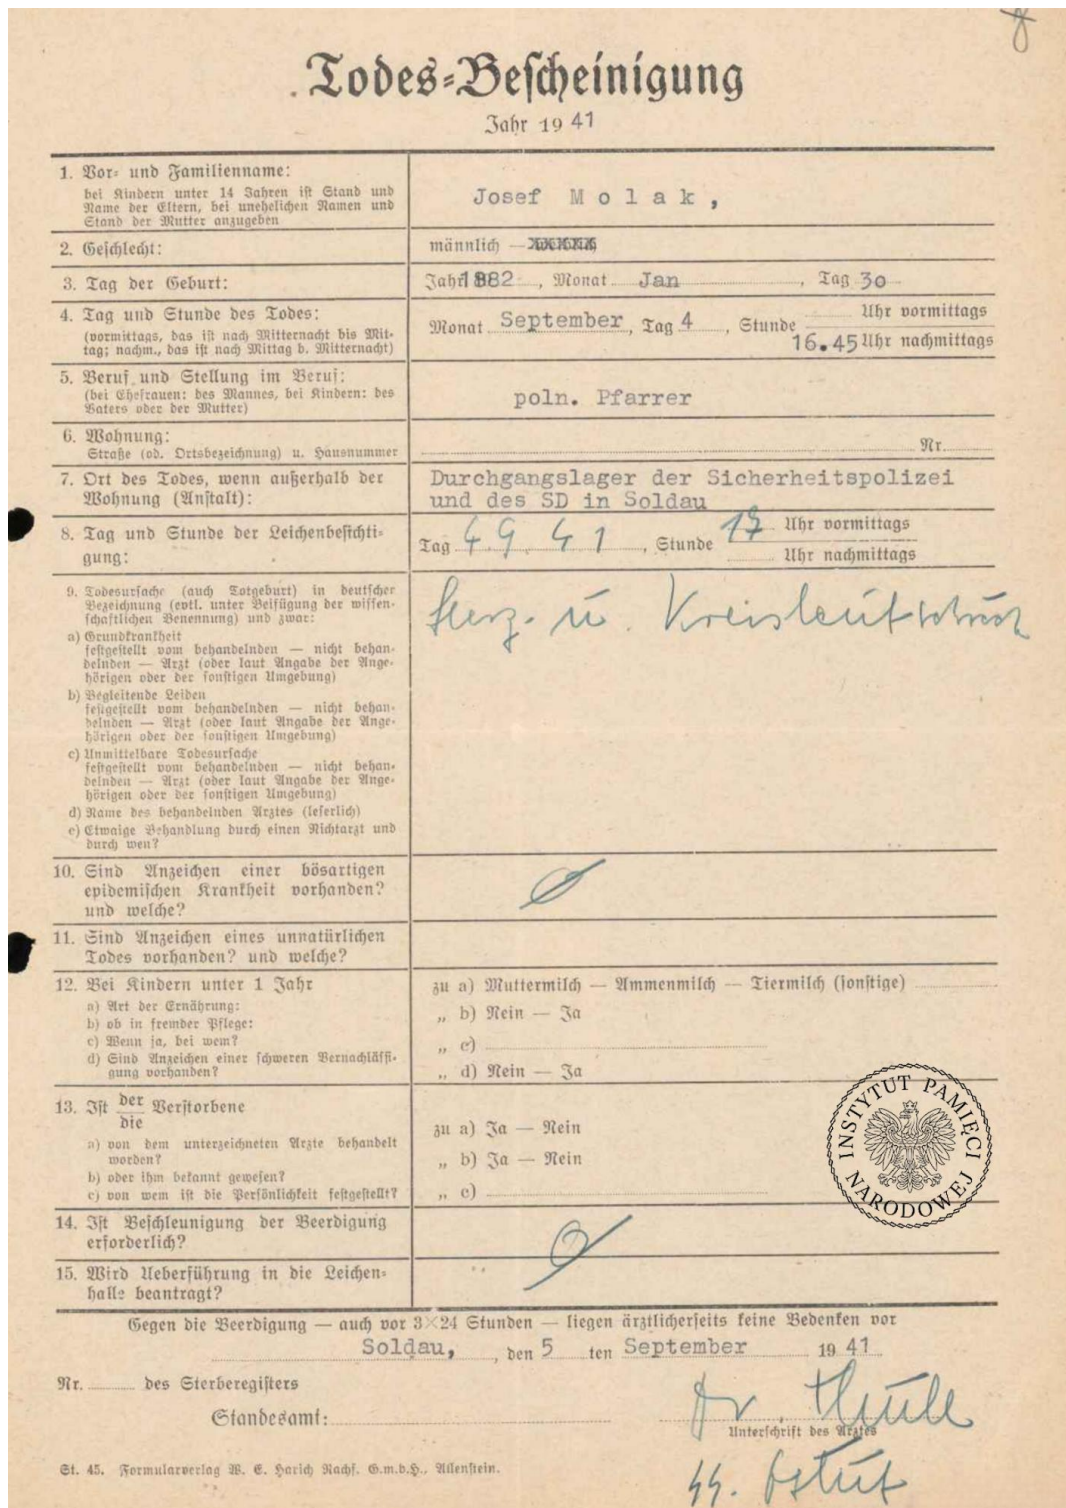 Todes-Bescheinigung
Jahr 19 41
1. Vor- und Familienname:
bei Kindern unter 14 Jahren ist Stand und
Name der Eltern, bei unehelichen Namen und
Stand der Mutter anzugeben
Josef Molak,
2. Geschlecht:
männlich —
3. Tag der Geburt:
Jahr 1882, Monat Jan, Tag 30
4. Tag und Stunde des Todes:
(vormittags, das ist nach Mitternacht bis Mit-
tag; nachm., das ist nach Mittag b. Mitternacht)
Monat September, Tag 4, Stunde
Uhr vormittags
16.45 Uhr nachmittags
5. Beruf und Stellung im Beruf:
(bei Ehefrauen: des Mannes, bei Kindern: des
Vaters oder der Mutter)
poln. Pfarrer
6. Wohnung:
Straße (od. Ortsbezeichnung) u. Hausnummer
Nr.
7. Ort des Todes, wenn außerhalb der
Wohnung (Anstalt):
Durchgangslager der Sicherheitspolizei
und des SD in Soldau
8. Tag und Stunde der Leichenbesichti-
gung:
Tag 4. 9. 41, Stunde 17 Uhr vormittags
Uhr nachmittags
9. Todesursache (auch Totgeburt) in deutscher
Bezeichnung (evtl. unter Beifügung der wissen-
schaftlichen Benennung) und zwar:
a) Grundkrankheit
festgestellt vom behandelnden — nicht behan-
delnden — Arzt (oder laut Angabe der Ange-
hörigen oder der sonstigen Umgebung)
b) Begleitende Leiden
festgestellt vom behandelnden — nicht behan-
delnden — Arzt (oder laut Angabe der Ange-
hörigen oder der sonstigen Umgebung)
c) Unmittelbare Todesursache
festgestellt vom behandelnden — nicht behan-
delnden — Arzt (oder laut Angabe der Ange-
hörigen oder der sonstigen Umgebung)
d) Name des behandelnden Arztes (leserlich)
e) Etwaige Behandlung durch einen Nichtarzt und
durch wen?
Herz- u.
10. Sind Anzeichen einer bösartigen
epidemischen Krankheit vorhanden?
und welche?
11. Sind Anzeichen eines unnatürlichen
Todes vorhanden? und welche?
12. Bei Kindern unter 1 Jahr
a) Art der Ernährung:
b) ob in fremder Pflege:
c) Wenn ja, bei wem?
d) Sind Anzeichen einer schweren Vernachlässi-
gung vorhanden?
zu a) Muttermilch — Ammenmilch — Tiermilch (sonstige)
„ b) Nein — Ja
„ c)
„ d) Nein — Ja
13. Ist der/die Verstorbene
a) von dem unterzeichneten Arzte behandelt
worden?
b) oder ihm bekannt gewesen?
c) von wem ist die Persönlichkeit festgestellt?
zu a) Ja — Nein
„ b) Ja — Nein
„ c)
INSTYTUT PAMIĘCI NARODOWEJ
14. Ist Beschleunigung der Beerdigung
erforderlich?
15. Wird Ueberführung in die Leichen-
halle beantragt?
Gegen die Beerdigung — auch vor 3×24 Stunden — liegen ärztlicherseits keine Bedenken vor
Soldau, den 5 ten September 19 41
Nr. des Sterberegisters
Standesamt:
Dr.
Unterschrift des Arztes
St. 45. Formularverlag W. E. Harich Nachf. G.m.b.H., Allenstein.